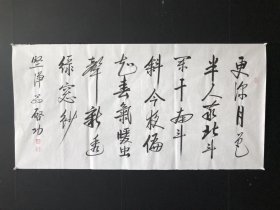 更深月色
半人家北斗
闌干南斗
斜今夜偏
知春氣暖虫
聲新透
綠窗紗
啓功